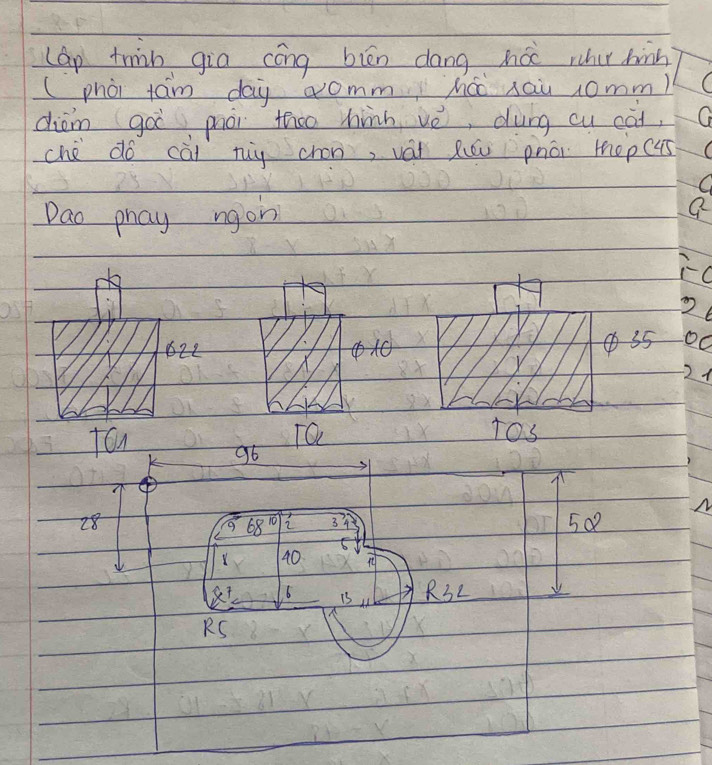 Lập trình gia công biên dạng hốc như hình
( phôi tấm dày 20mm, hốc sâu 10mm)
điểm gốc phôi theo hình vẽ, dụng cụ cắt,
chế độ cắt tùy chọn, vật liệu phôi thép C45
Dao phay ngón
Φ22
Φ10
Φ35
T01
T02
T03
96
28
50
9 68 10 2 3 4
8 40 5 12
7 6 13 11 R32
R5